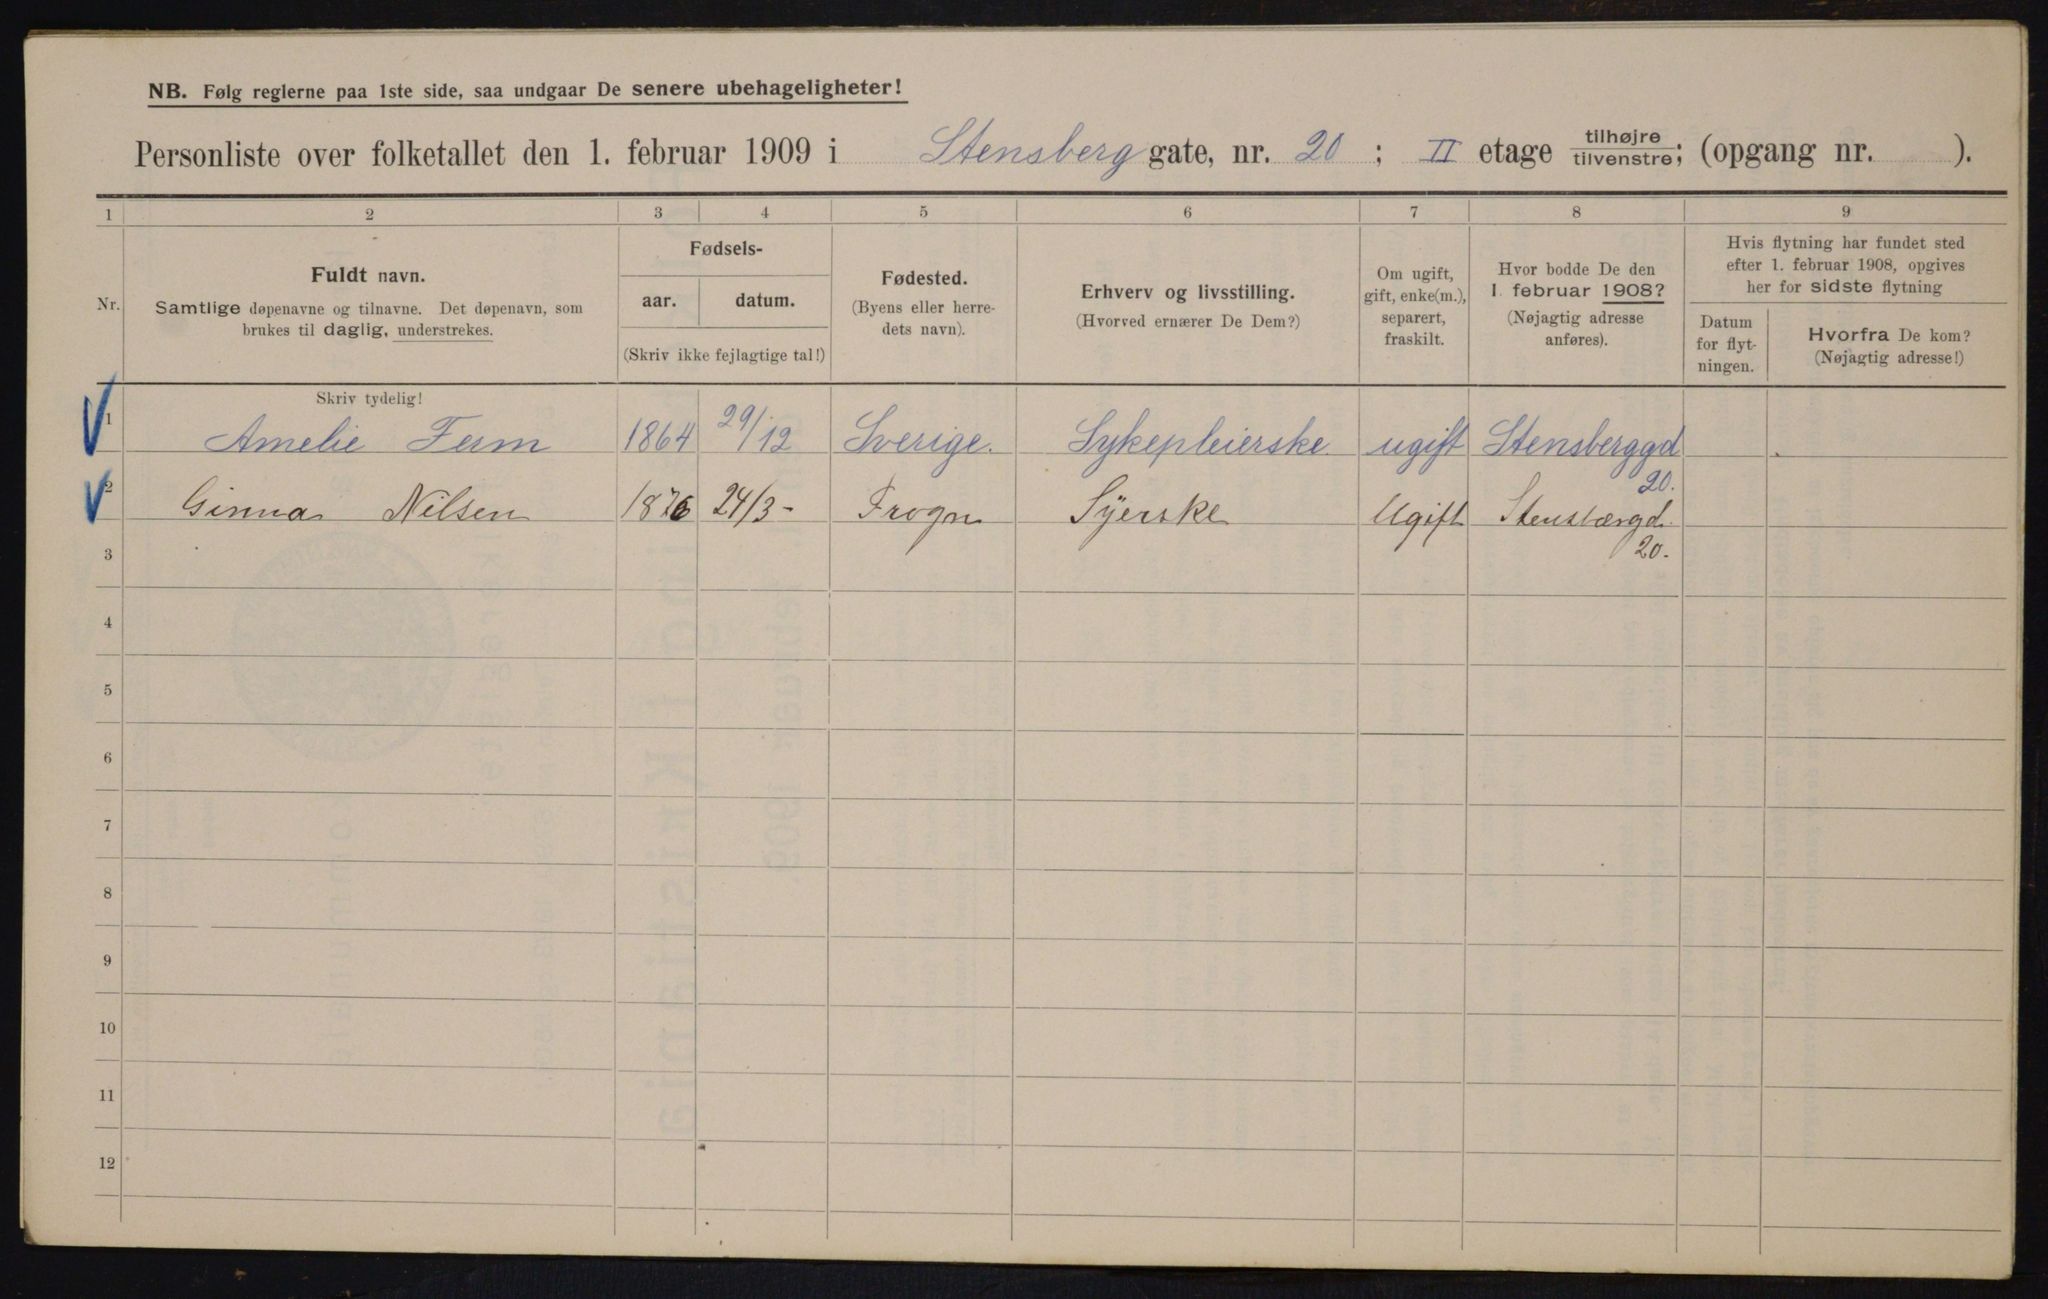 NB. Følg reglerne paa 1ste side, saa undgaar De senere ubehageligheter!
Personliste over folketallet den 1. februar 1909 i Stensberg gate, nr. 20 ; II etage tilhøjre/tilvenstre; (opgang nr. ).
1 2 3 4 5 6 7 8 9
Nr.
Fuldt navn.
Samtlige døpenavne og tilnavne. Det døpenavn, som
brukes til daglig, understrekes.
Fødsels-
aar. datum.
(Skriv ikke fejlagtige tal!)
Fødested.
(Byens eller herre-
dets navn).
Erhverv og livsstilling.
(Hvorved ernærer De Dem?)
Om ugift,
gift, enke(m.),
separert,
fraskilt.
Hvor bodde De den
1. februar 1908?
(Nøjagtig adresse
anføres).
Hvis flytning har fundet sted
efter 1. februar 1908, opgives
her for sidste flytning
Datum
for flyt-
ningen.
Hvorfra De kom?
(Nøjagtig adresse!)
Skriv tydelig!
1 Amelie Ferm 1864 29/12 Sverige. Sykepleierske. ugift Stensberggd
20.
2 Ginna Nilsen 1876 24/3- Frogn Syerske Ugift Stensbærgd.
20.
3
4
5
6
7
8
9
10
11
12